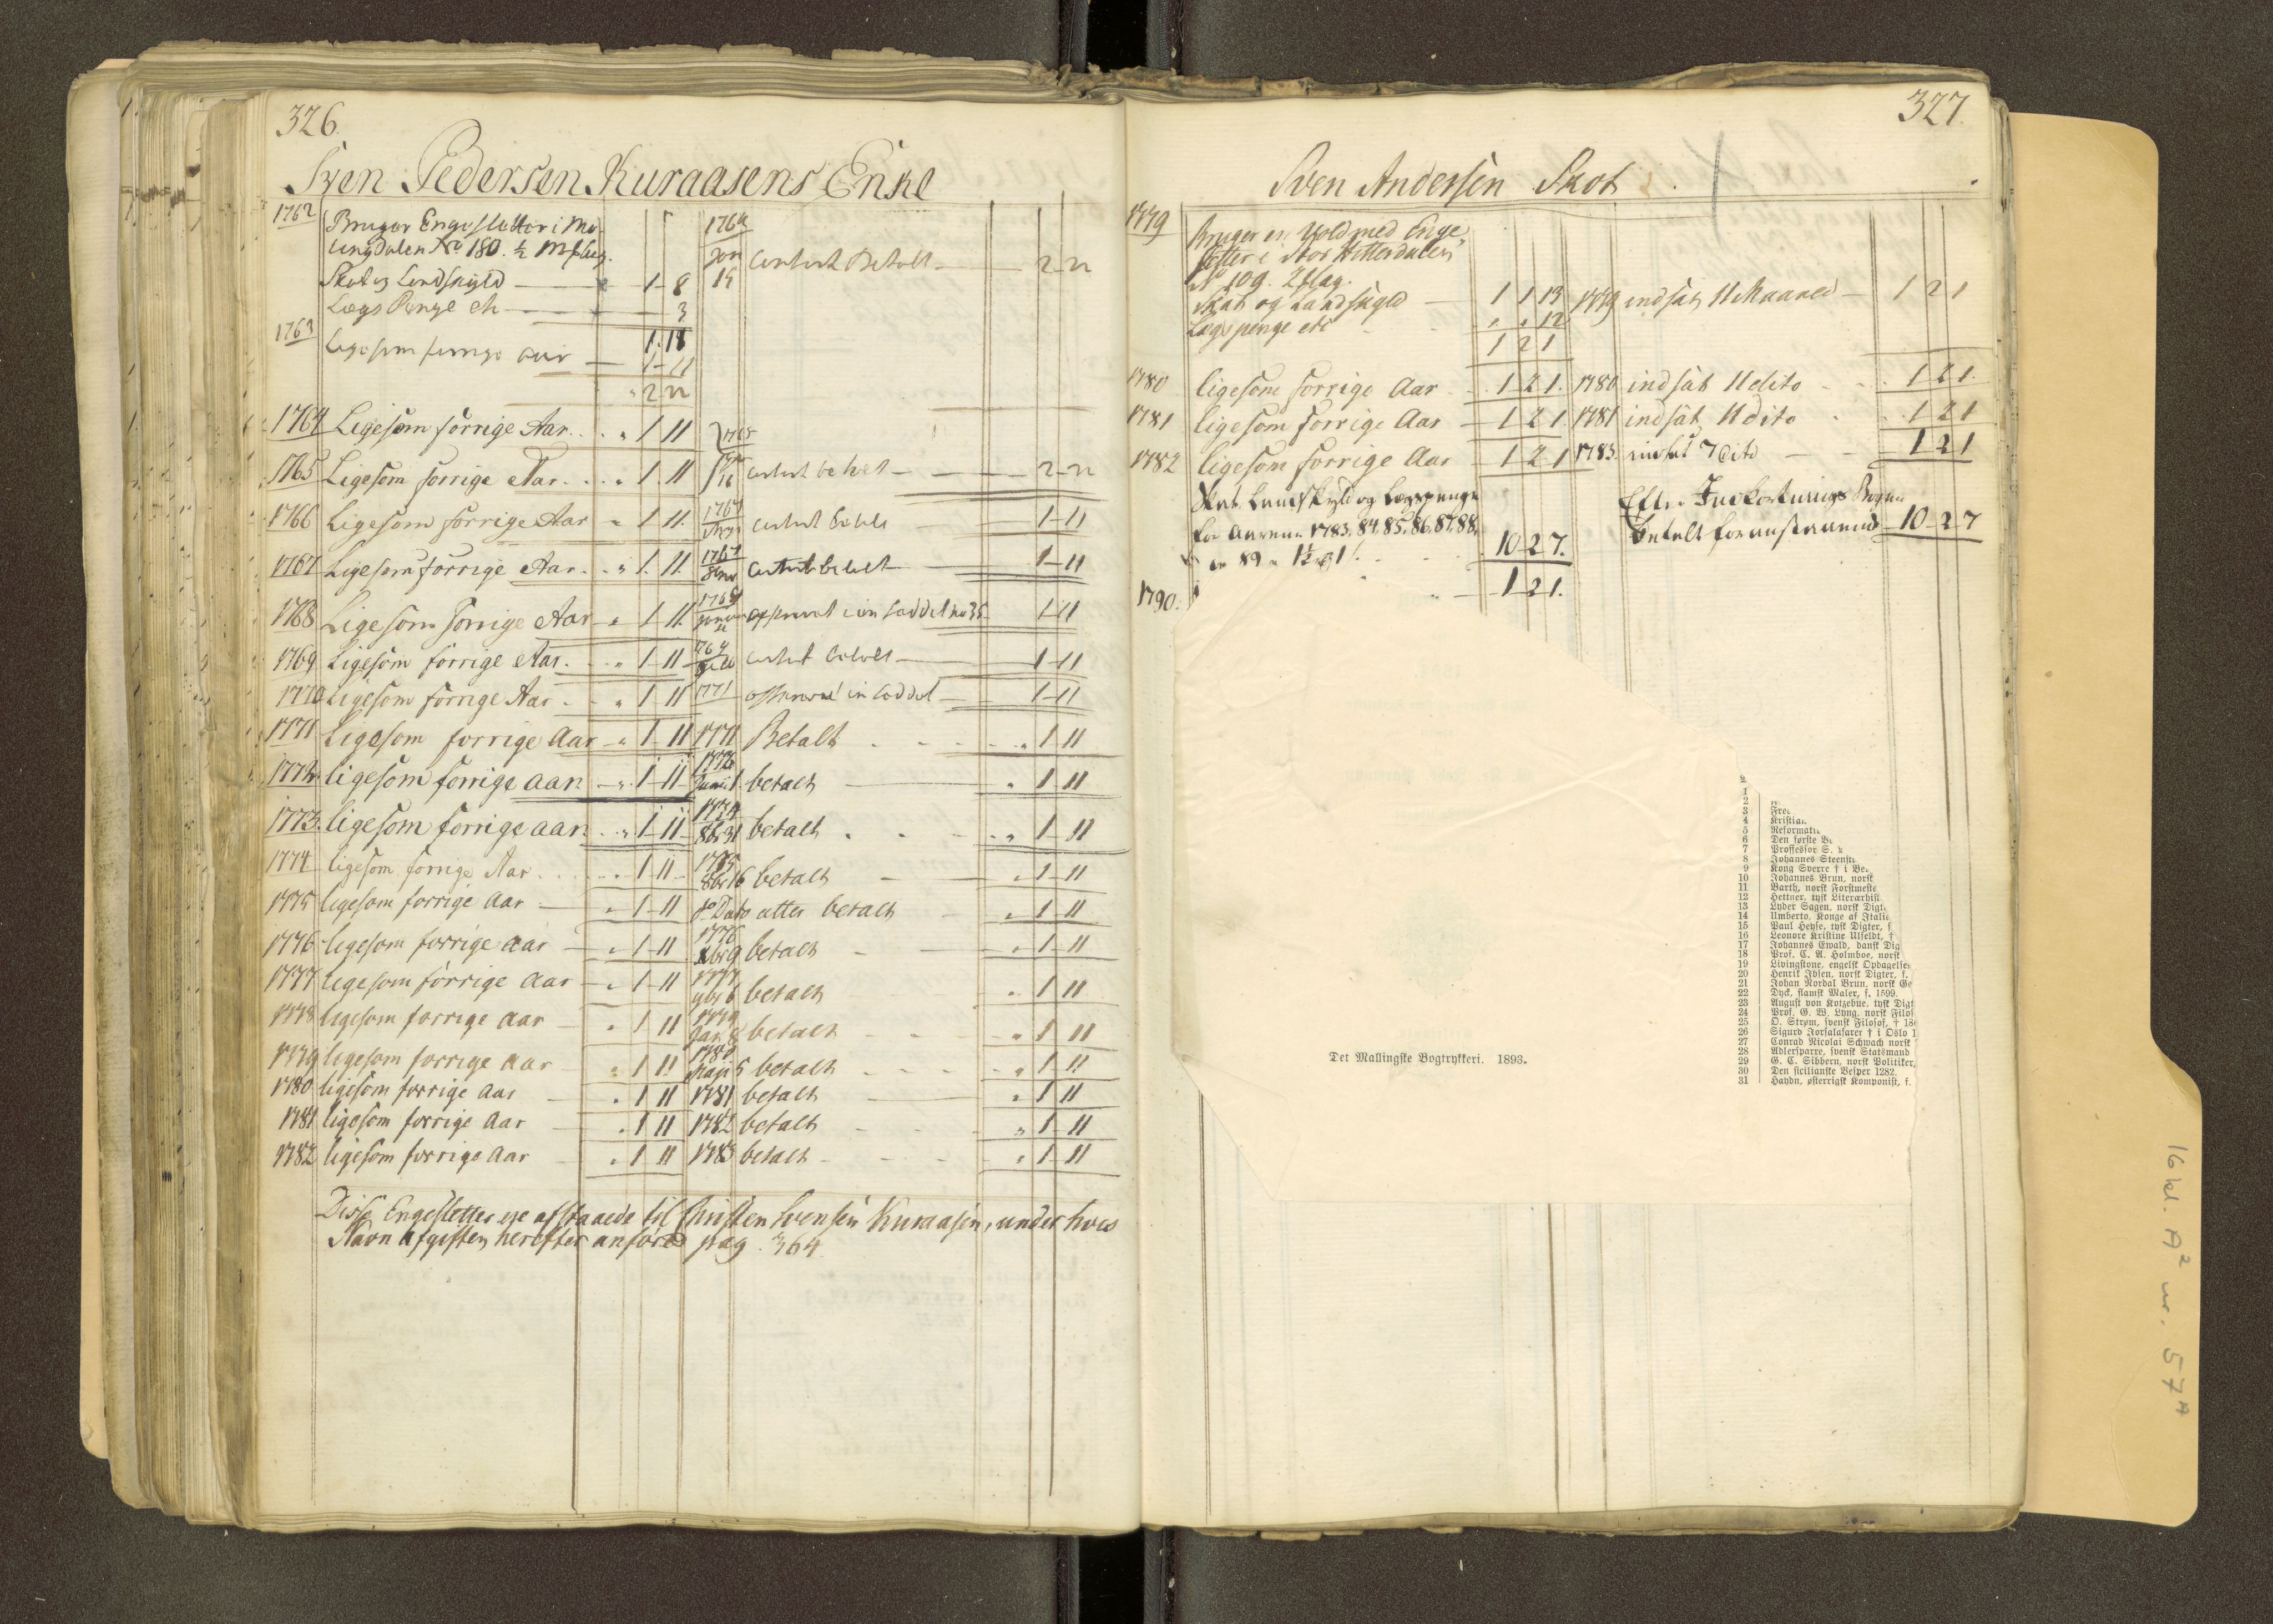 326.
Sven Pedersen Kuraasens Enke
1762 Bruger Engesletter i Mo-
lingdalen No 180. ½
Skat og Landskyld 1-8
Lægs Penge etc 3
1.11
1763 Ligesom forrige aar 1-11
2-22
1764
Jan
15 Contant Betalt 2-22
1764 Ligesom forrige Aar. 1 11
1765 Ligesom forrige Aar. 1 11
1765
contant betalt 2-22
1766 Ligesom forrige Aar 1 11.
1767
contant betalt 1-11
1767 Ligesom forrige Aar. 1. 11.
1767
contant betalt 1-11
1768 Ligesom forrige Aar 1 11.
1768
1-11
1769 Ligesom forrige Aar. 1-11
1769
contant betalt 1-11
1770 Ligesom forrige Aar. 1 11
1771 in Coddel 1-11
1771 Ligesom forrige Aar 1-11 1771 Betalt 1 11
1772 ligesom forrige aar 1-11
Junii 1 betalt 1 11
1773. ligesom forrige aar. 1-11
1774
8br 31 betalt 1-11
1774 ligesom forrige Aar 1-11
1775
8br 16 betalt 1-11
1775 ligesom forrige Aar 1-11 do Dato atter betalt 1-11
1776 ligesom forrige aar 1-11
1776
Xbr 9 betalt 1-11
1777 ligesom forrige aar 1-11
1777
9br 6 betalt 1 11
1778 ligesom forrige aar 1 11
1779
Jan 8 betalt 1 11
1779 ligesom forrige aar 1 11
1780
Maji 5 betalt 1 11
1780 ligesom forrige aar 1 11 1781 betalt 1 11
1781 ligesom forrige aar 1 11 1782 betalt 1-11
1782 ligesom forrige aar 1 11 1783 betalt 1-11
Disse Engesletter ere afstaaede til Christen Svensen Kuraasen, under hves
Navn Afgiften herefter anføres pag. 364.
327.
Sven Andersen Skot
1779 Bruger en Vold med Enge
sletter i Stor Hitterdalen
No 109. 2 slag.
Skat og Landskyld 1 1 13
Lægspenge etc 12
1 2 1
1779 indsat 11 Maaned 1 2 1
1780 ligesom forrige Aar 1 2 1. 1780 indsat 11 dito 1 2 1.
1781 ligesom forrige Aar 1 2 1. 1781 indsat 11 dito 1 2 1
1782 ligesom forrige Aar 1 2 1 1783. indsat 7 dito 1 2 1
Skat Landskyld og Lægspenge
for Aarene 1783. 84. 85. 86. 87. 88.
og 89 10 2 7.
Efter Indkortnings Bogen
betalt foranstaaende 10-2-7
1790. 1 2 1.
Det Mallingske Bogtrykkeri. 1893.
1
2
3 Fre
4 Kristian
5 Reformati
6 Den første B
7 Proffessor S.
8 Johannes Steenst
9 Kong Sverre † i Be
10 Johannes Brun, norsk
11 Barth, norsk Forstmeste
12 Hettner, tysk Literærhist
13 Lyder Sagen, norsk Digt
14 Umberto, Konge af Italie
15 Paul Heyse, tysk Digter, f
16 Leonore Kristine Ulfeldt, †
17 Johannes Ewald, dansk Dig
18 Prof. C. A. Holmboe, norsk
19 Livingstone, engelsk Opdagelse
20 Henrik Ibsen, norsk Digter, f.
21 Johan Nordal Brun, norsk Ge
22 Dyck, flamsk Maler, f. 1599.
23 August von Kotzebue, tysk Digt
24 Prof. G. W. Lyng, norsk Filos
25 O. Strøm, svensk Filosof, † 18
26 Sigurd Jorsalafarer † i Oslo 1
27 Conrad Nicolai Schwach norsk
28 Adlersparre, svensk Statsmand
29 G. C. Sibbern, norsk Politiker,
30 Den sicilianske Vesper 1282.
31 Haydn, østerrigsk Komponist, f.
16 kl. A2 nr. 57A